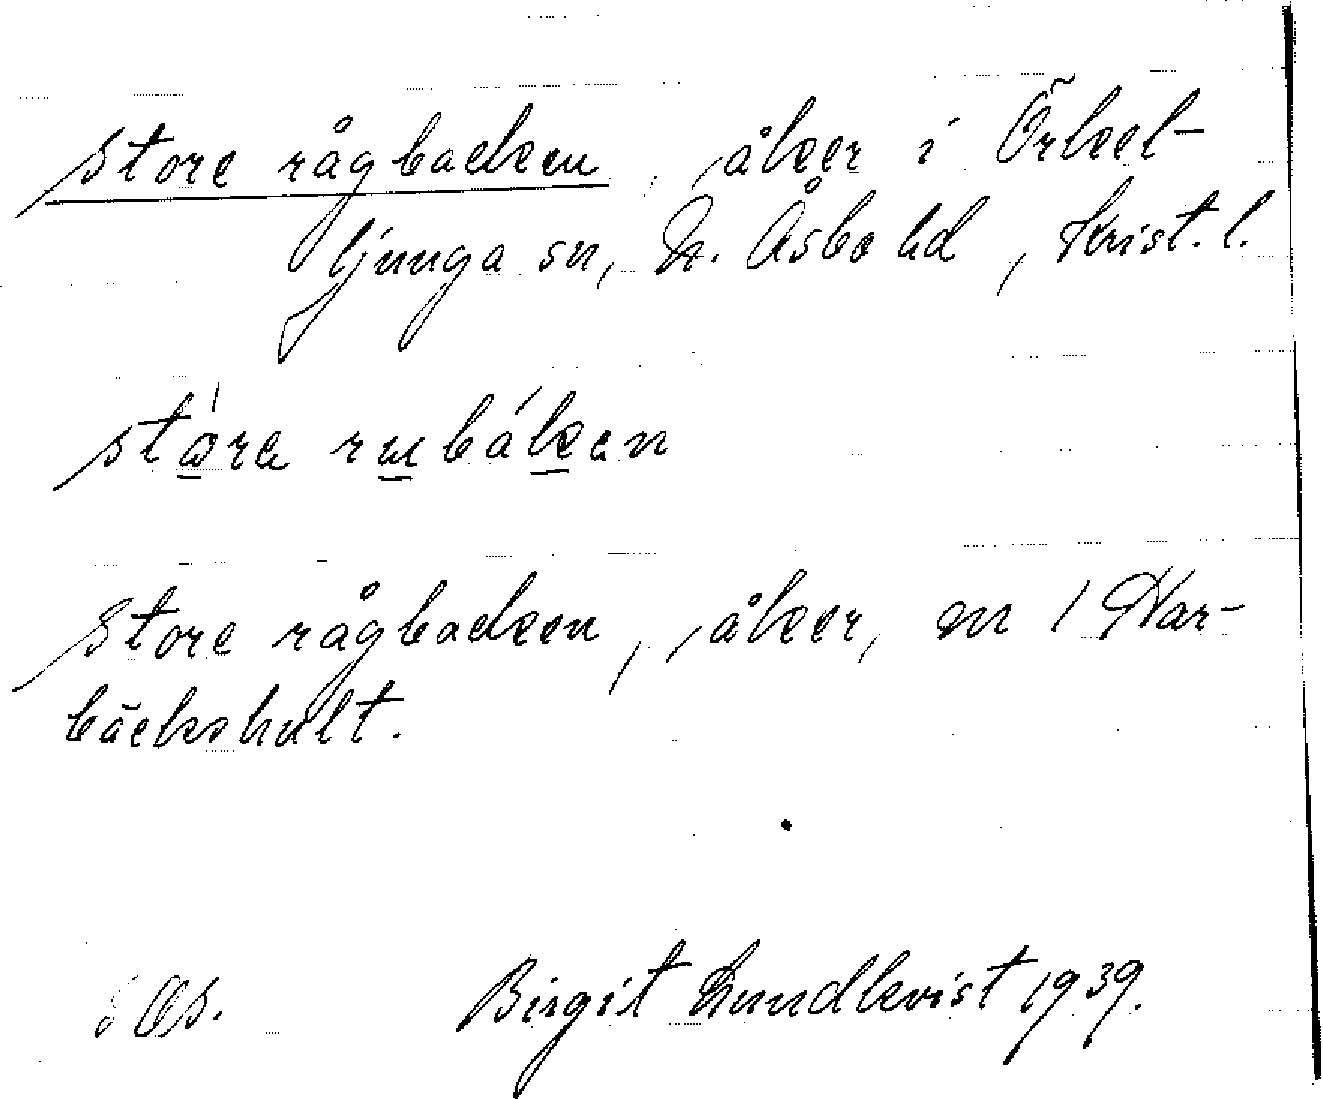 store rågbacken, åker i Örkel-
ljunga sn, N. Åsbo hd, Krist. l.
store rubáken
store rågbacken, åker, en 1 Har-
bäckshult.
Birgit Lundkvist 1939.